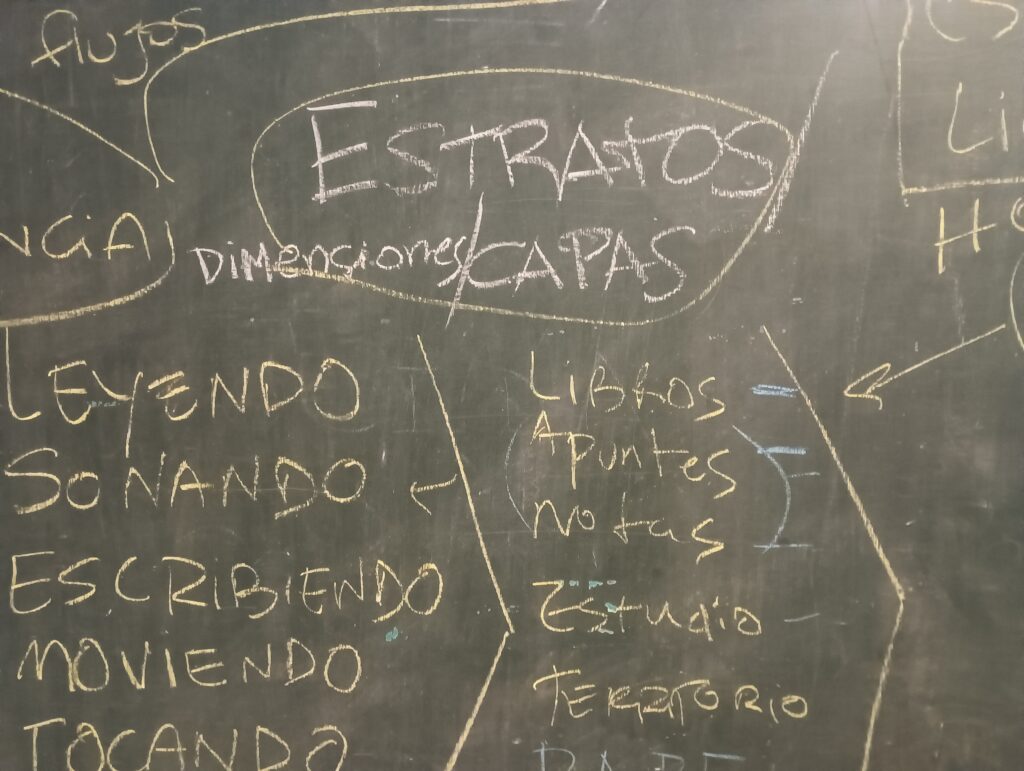 flujos
ESTRATOS
Dimensiones/CAPAS
LEYENDO
SONANDO
ESCRIBIENDO
MOVIENDO
TOCANDO
Libros
Apuntes
Notas
Estudio
TERRITORIO